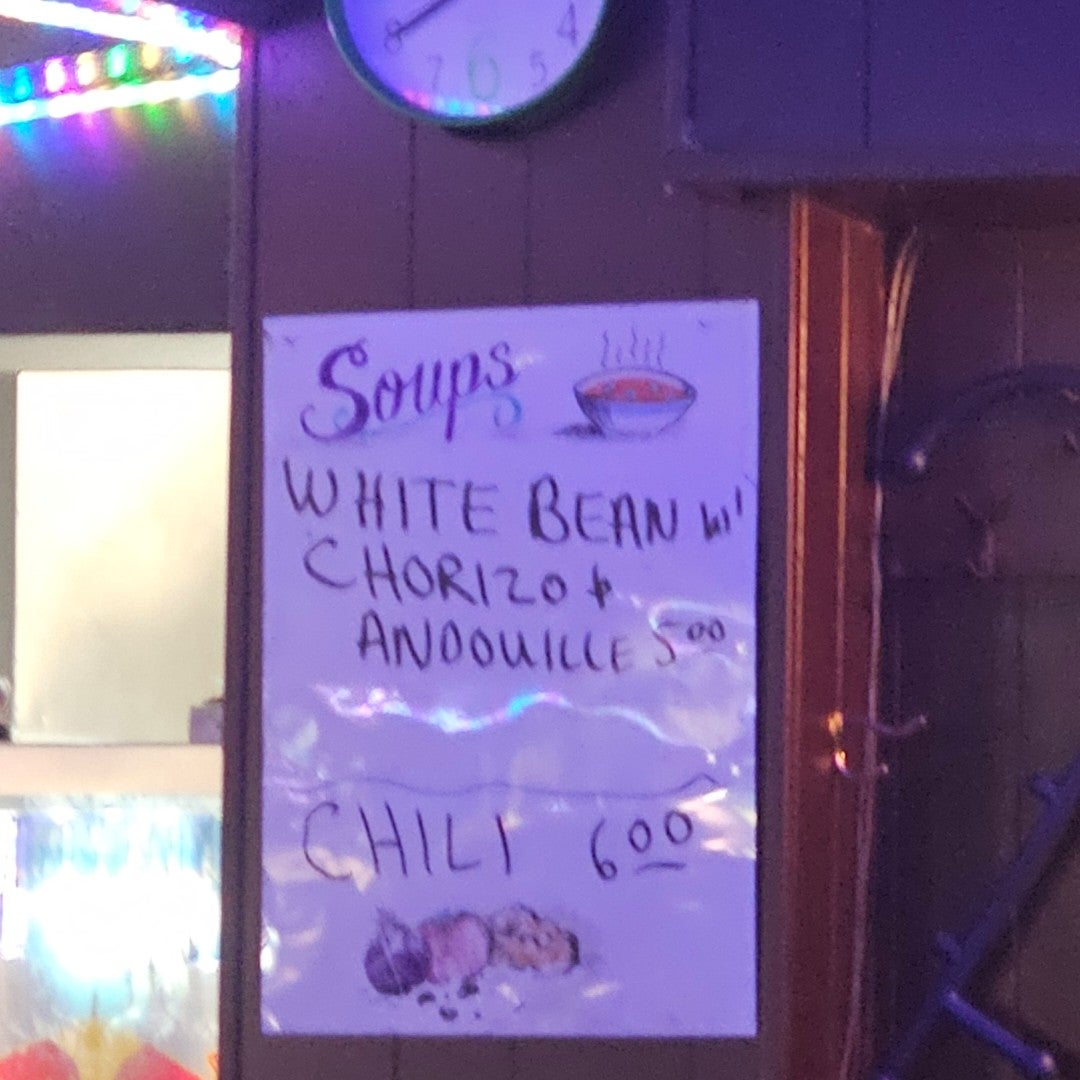 4
7 6 5
Soups
WHITE BEAN w/
CHORIZO &
ANDOUILLE 500
CHILI 600